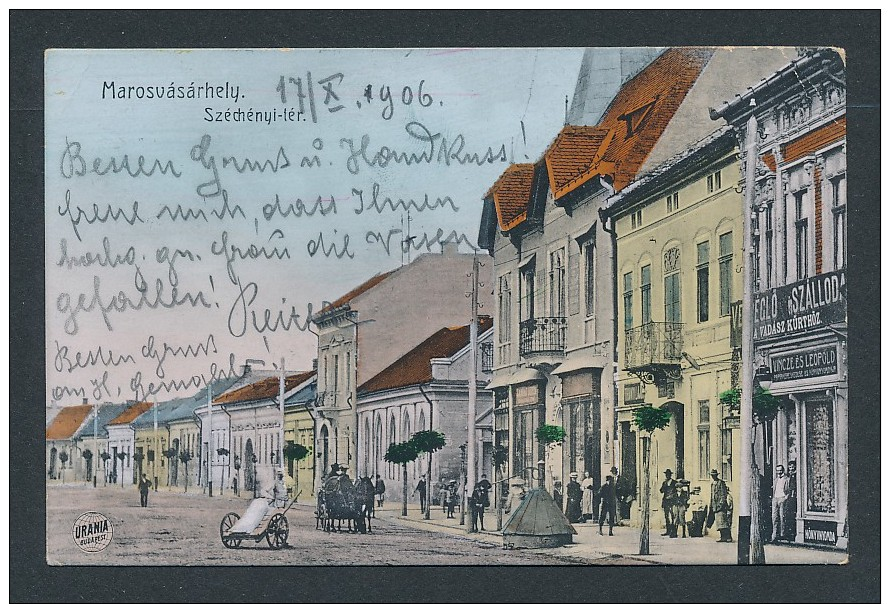 Marosvásárhely.
Széchényi-tér.
17/X. 1906.
Besten Gruss u. Handkuss!
freue mich, dass Ihnen
gn. frau die Vasen
gefallen!
Besten Gruss
VENDÉGLŐ SZÁLLODA
A VADÁSZ KÜRTHÖZ
VINCZE ÉS LEOPOLD
KÖNYVNYOMDA
URANIA
BUDAPEST